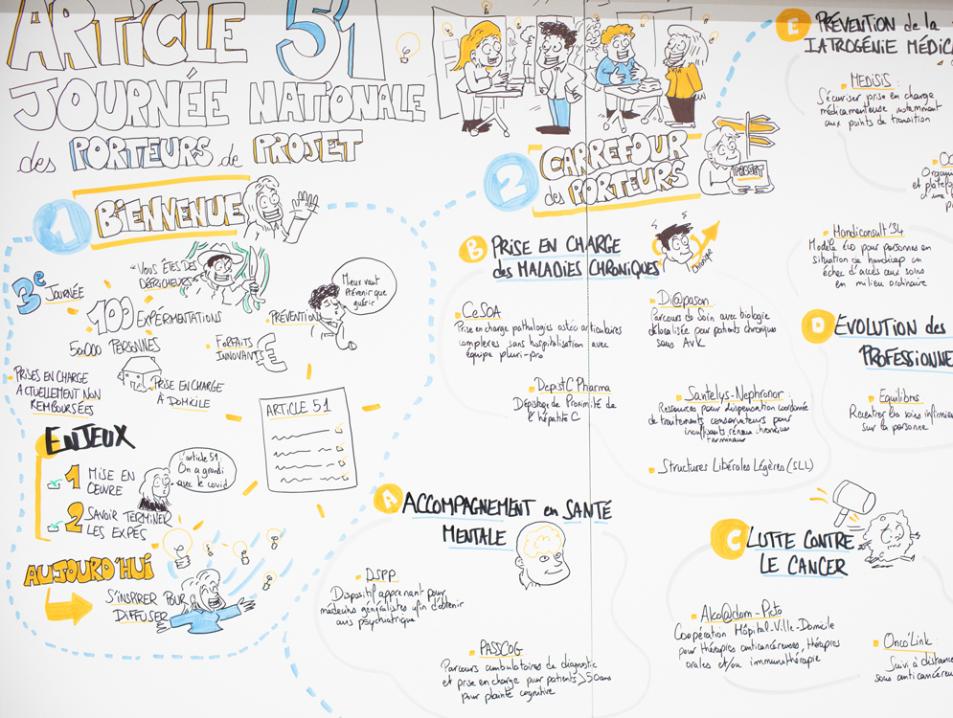 ARTICLE 51
JOURNÉE NATIONALE
des PORTEURS de PROJET
1 BIENVENUE
3e JOURNÉE
"VOUS ÊTES DES
DÉFRICHEURS"
100 EXPERIMENTATIONS
50000 PERSONNES
PRÉVENTION
Mieux vaut
Prévenir que
guérir
FORFAITS
INNOVANTS
€
PRISES EN CHARGE
ACTUELLEMENT NON
REMBOURSÉES
PRISE EN CHARGE
À DOMICILE
ARTICLE 51
ENJEUX
1 MISE EN
OEUVRE
2 SAVOIR TERMINER
LES EXPÉS
L'article 51
On a grandi
avec le covid
AUJOURD'HUI
S'INSPIRER POUR
DIFFUSER
2 CARREFOUR
des PORTEURS
PROJET
B PRISE EN CHARGE
des MALADIES CHRONIQUES
Chronique
CeSOA
Prise en charge pathologies ostéo articulaires
complexes sans hospitalisation avec
équipe pluri-pro
Di@pason
Parcours de Soin avec biologie
délocalisée pour patients chroniques
sous AVK
DepistC Pharma
Dépistage de Proximité de
l'hépatite C
Santelys-Nephronor
Ressources pour dispensation coordonnée
de traitements conservateurs pour
insuffisants rénaux chroniques
terminaux
Structures Libérales Légères (SLL)
A ACCOMPAGNEMENT en SANTÉ
MENTALE
DSPP
Dispositif apprenant pour
médecins généralistes afin d'obtenir
avis psychiatrique
PASSCOG
Parcours ambulatoires de diagnostic
et prise en charge pour patients > 50 ans
pour plainte cognitive
C LUTTE CONTRE
LE CANCER
Ako@dom-Picto
Coopération Hôpital-Ville-Domicile
pour thérapies anticancéreuses, thérapies
orales et/ou immunothérapie
Onco'Link
Suivi à distance
sous anticancéreux
D EVOLUTION des
PROFESSIONNE
Equilibres
Recentrer les soins infirmiers
sur la personne
E PRÉVENTION de la
IATROGÉNIE MÉDICA
MEDISIS
Sécuriser prise en charge
médicamenteuse notamment
aux points de transition
Handiconsult'34
Modèle éco pour personnes en
situation de handicap en
échec d'accès aux soins
en milieu ordinaire